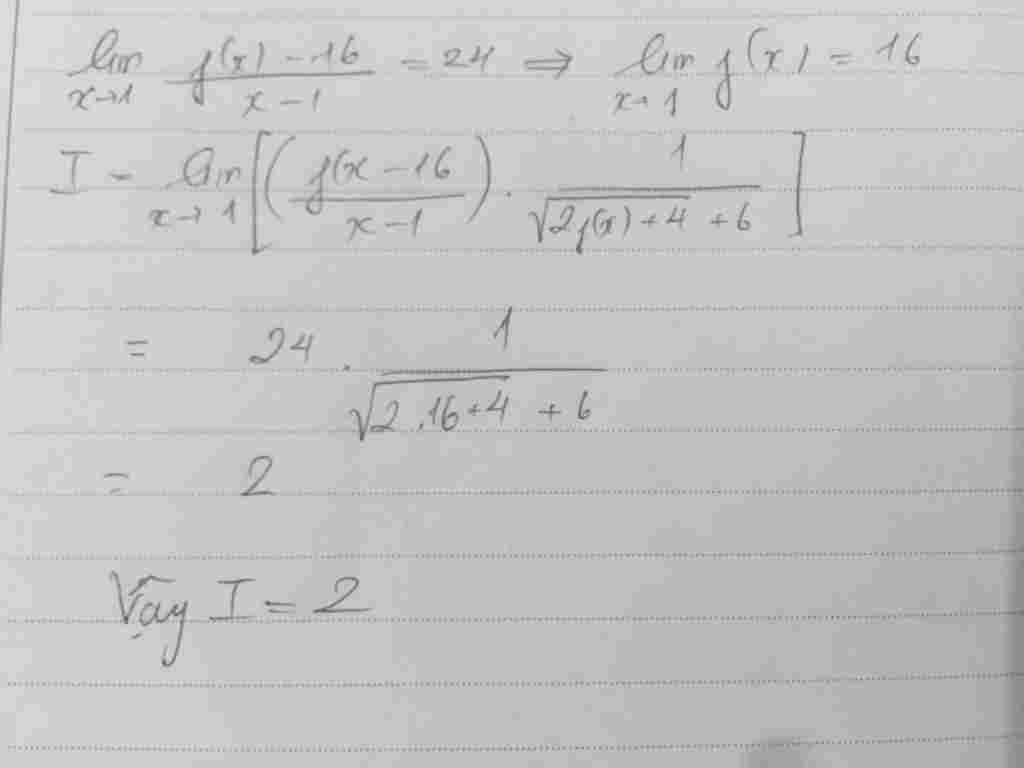 lim x→1 f(x) - 16 / x - 1 = 24 ⇒ lim x→1 f(x) = 16
I = lim x→1 [( f(x - 16 / x - 1 ) . 1 / √2f(x) + 4 + 6 ]
= 24 . 1 / √2.16+4 + 6
= 2
Vậy I = 2